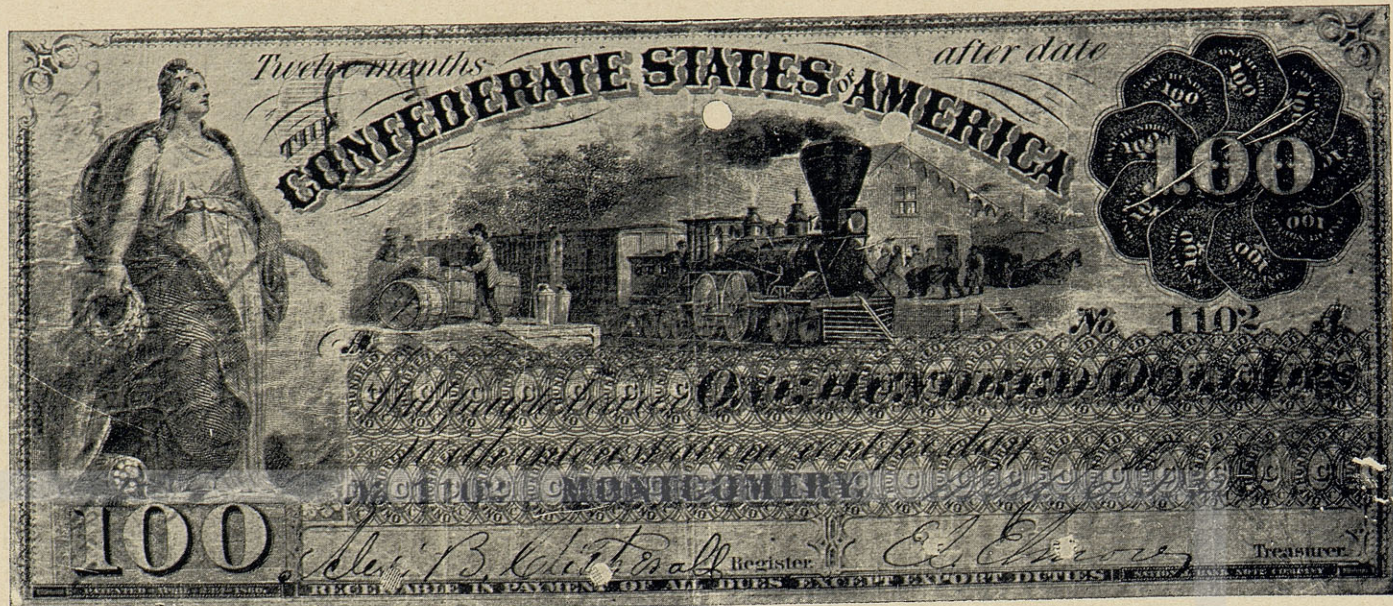 Twelve months after date
THE CONFEDERATE STATES OF AMERICA
ONE HUNDRED
100
100
No 1102 A
Will pay to Bearer ONE HUNDRED DOLLARS
With interest at one cent per day
No 1102 MONTGOMERY,
100
Alex B. Clitherall Register. E. C. Elmore Treasurer.
RECEIVABLE IN PAYMENT OF ALL DUES EXCEPT EXPORT DUTIES